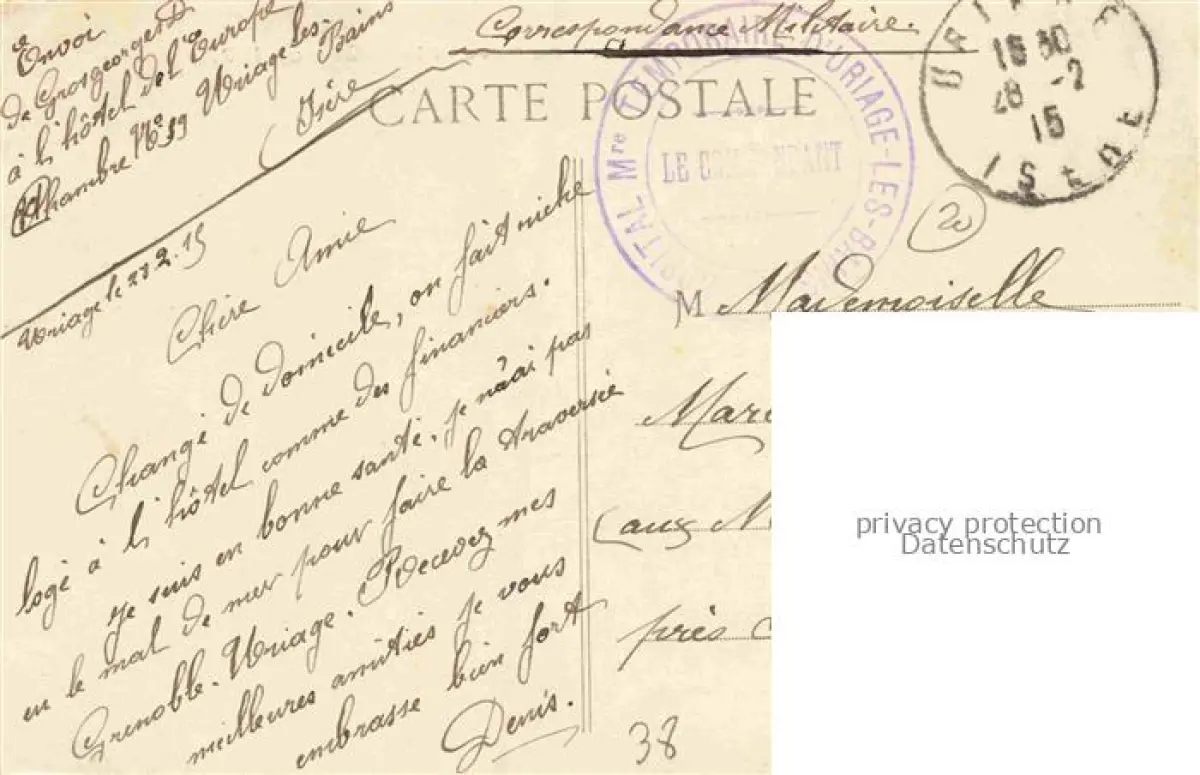 Correspondance Militaire.
CARTE POSTALE
Envoi
de Grosgeorges D
à l'hôtel de l'Europe
Chambre N° 59 Uriage les Bains
(Isère)
Uriage le 27 2.15
Chère Amie
Changé de domicile, on fait niche
logé à l'hôtel comme des financiers.
Je suis en bonne santé. Je n'ai pas
eu le mal de mer pour faire la traversée
Grenoble-Uriage. Recevez mes
meilleures amitiés je vous
embrasse bien fort
Denis.
HOPITAL Mre TEMPORAIRE D'URIAGE-LES-BAINS
LE COMMANDANT
URIAGE
15 30
28 -2
15
ISERE
20
M Mademoiselle
Marc
(aux M
près
38
privacy protection
Datenschutz